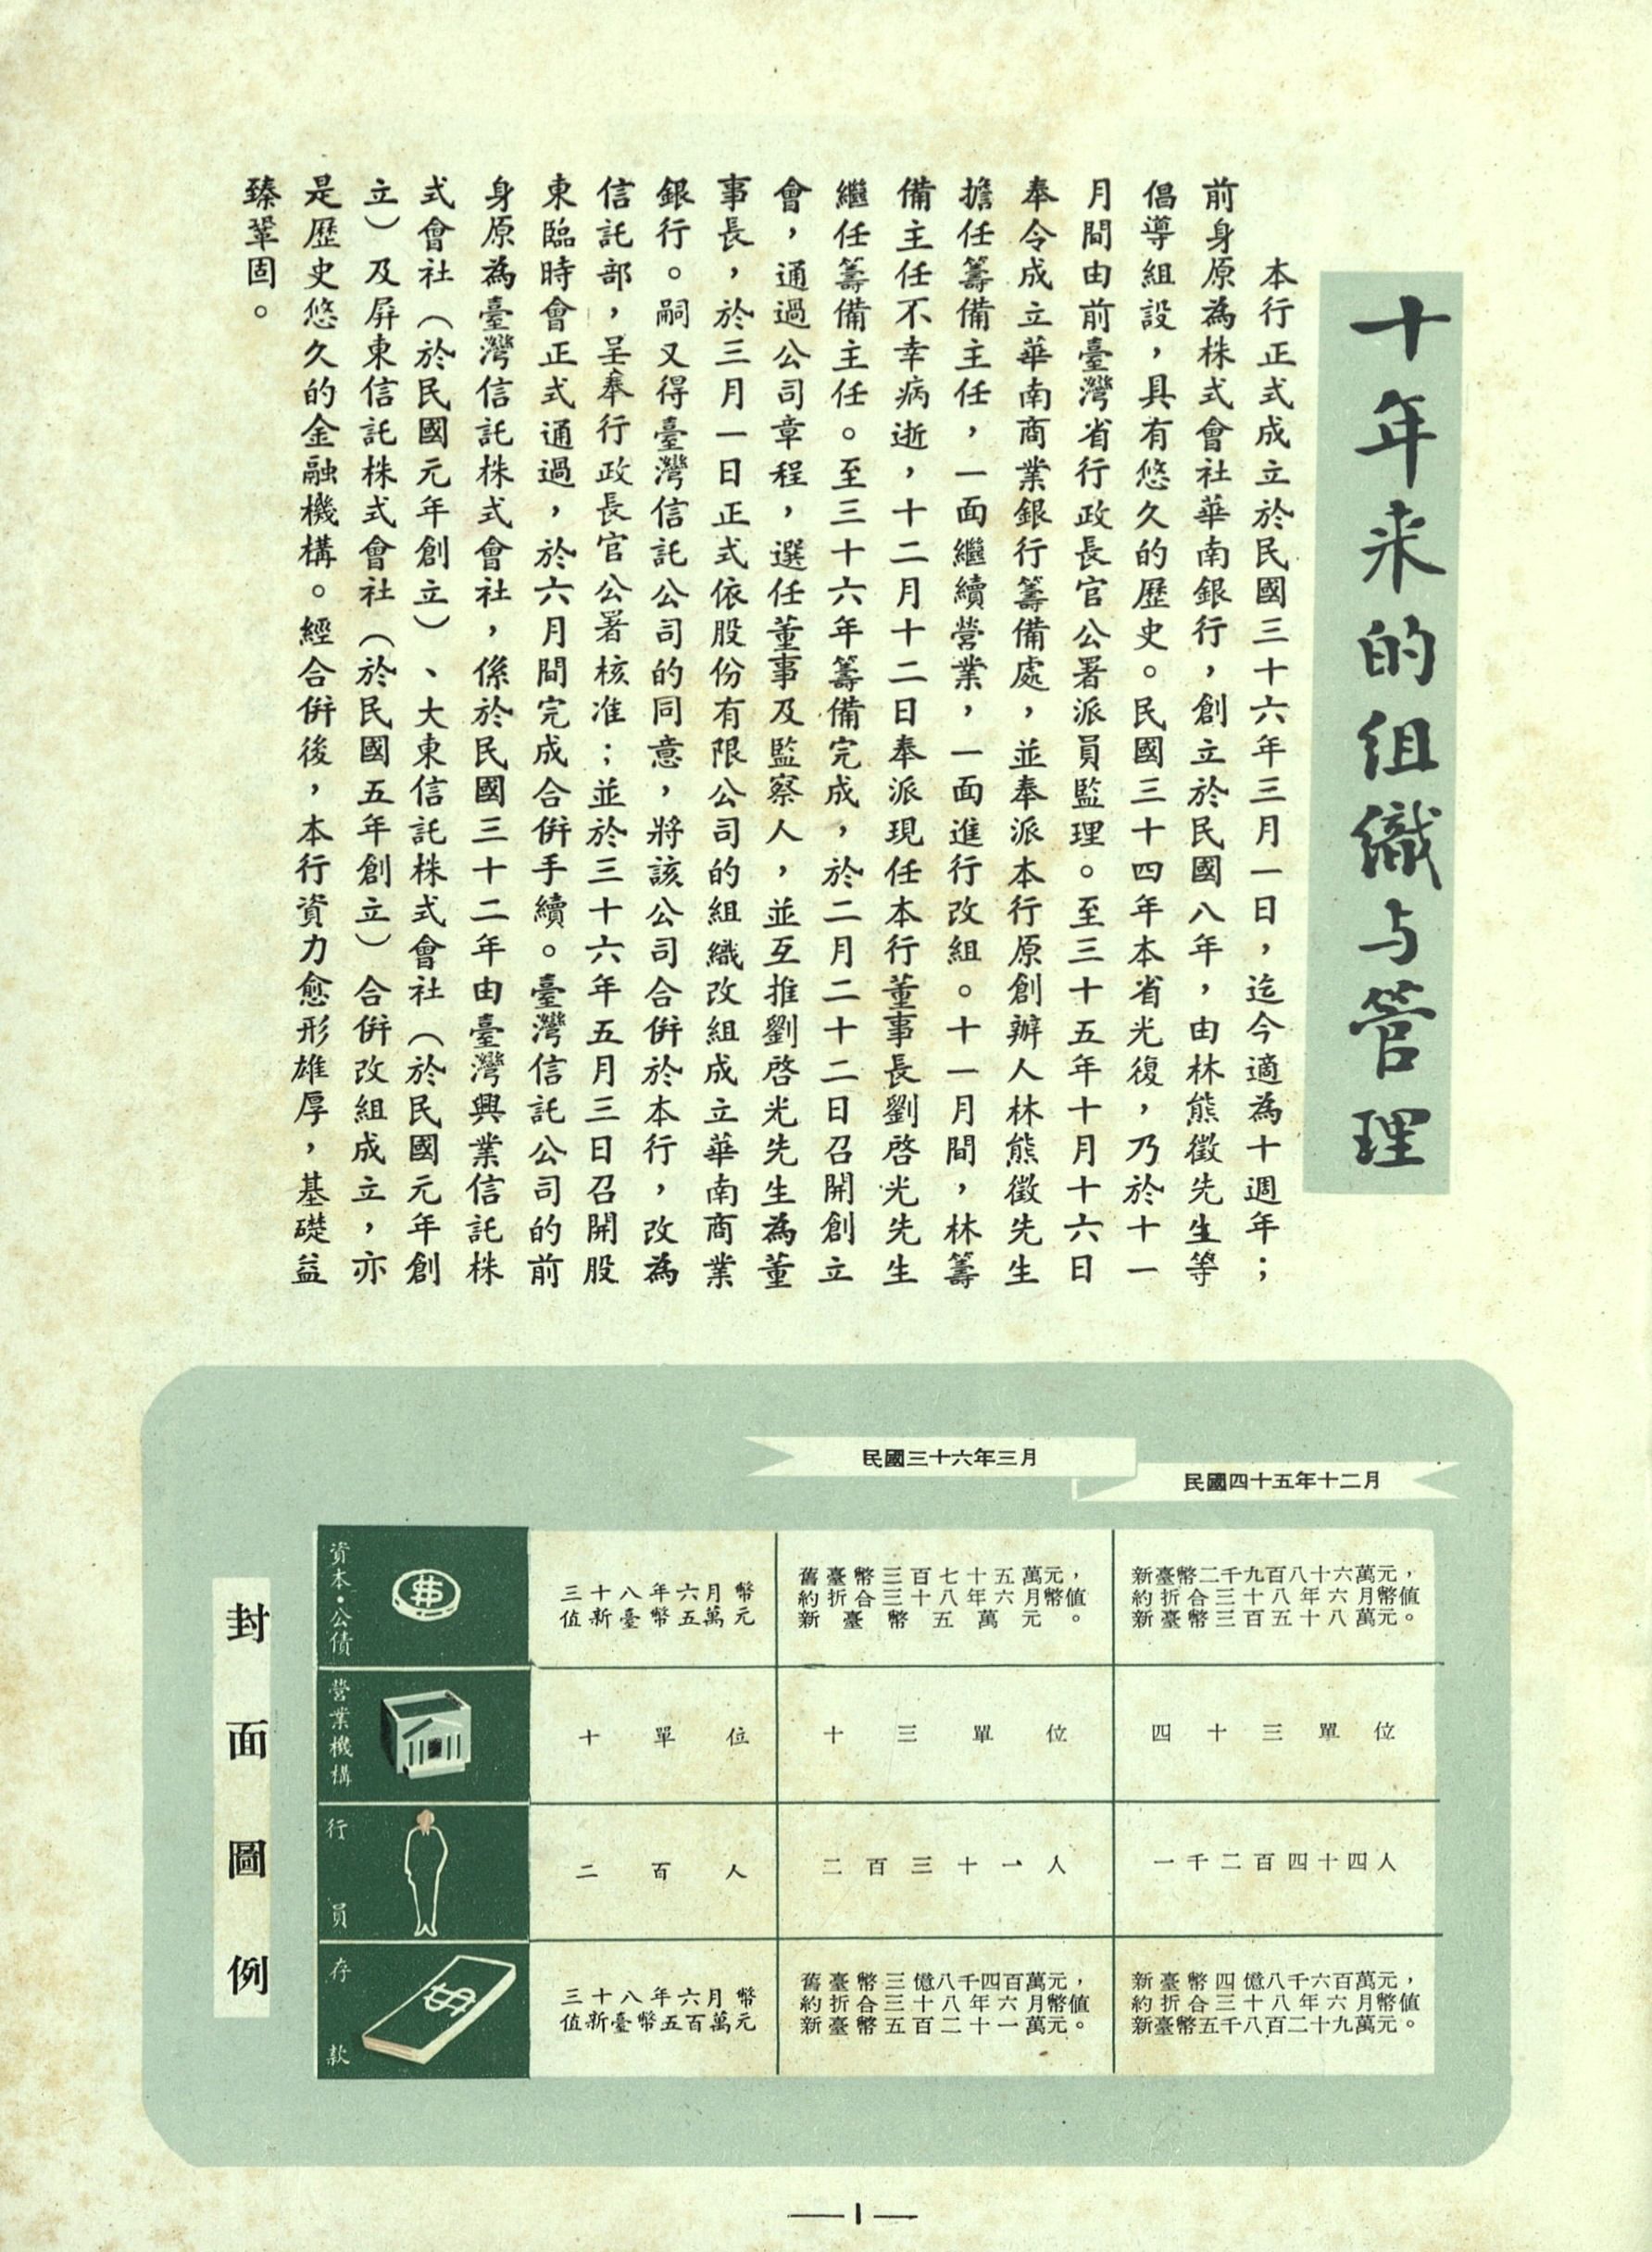 十年来的组織与管理
本行正式成立於民國三十六年三月一日，迄今適為十週年；
前身原為株式會社華南銀行，創立於民國八年，由林熊徵先生等
倡導組設，具有悠久的歷史。民國三十四年本省光復，乃於十一
月間由前臺灣省行政長官公署派員監理。至三十五年十月十六日
奉令成立華南商業銀行籌備處，並奉派本行原創辦人林熊徵先生
擔任籌備主任，一面繼續營業，一面進行改組。十一月間，林籌
備主任不幸病逝，十二月十二日奉派現任本行董事長劉啓光先生
繼任籌備主任。至三十六年籌備完成，於二月二十二日召開創立
會，通過公司章程，選任董事及監察人，並互推劉啓光先生為董
事長，於三月一日正式依股份有限公司的組織改組成立華南商業
銀行。嗣又得臺灣信託公司的同意，將該公司合併於本行，改為
信託部，呈奉行政長官公署核准；並於三十六年五月三日召開股
東臨時會正式通過，於六月間完成合併手續。臺灣信託公司的前
身原為臺灣信託株式會社，係於民國三十二年由臺灣興業信託株
式會社（於民國元年創立）、大東信託株式會社（於民國元年創
立）及屏東信託株式會社（於民國五年創立）合併改組成立，亦
是歷史悠久的金融機構。經合併後，本行資力愈形雄厚，基礎益
臻鞏固。
封面圖例
民國三十六年三月
民國四十五年十二月
資本·公債
三十八年六月幣
值新臺幣五萬元
舊臺幣三百七十五萬元，
約折合三十八年六月幣值
新臺幣五萬元。
新臺幣二千九百八十六萬元，
約折合三十八年六月幣值
新臺幣三百五十八萬元。
營業機構
十單位
十三單位
四十三單位
行員
二百人
二百三十一人
一千二百四十四人
存款
三十八年六月幣
值新臺幣五百萬元
舊臺幣三億八千四百萬元，
約折合三十八年六月幣值
新臺幣五百二十一萬元。
新臺幣四億八千六百萬元，
約折合三十八年六月幣值
新臺幣五千八百二十九萬元。
—1—